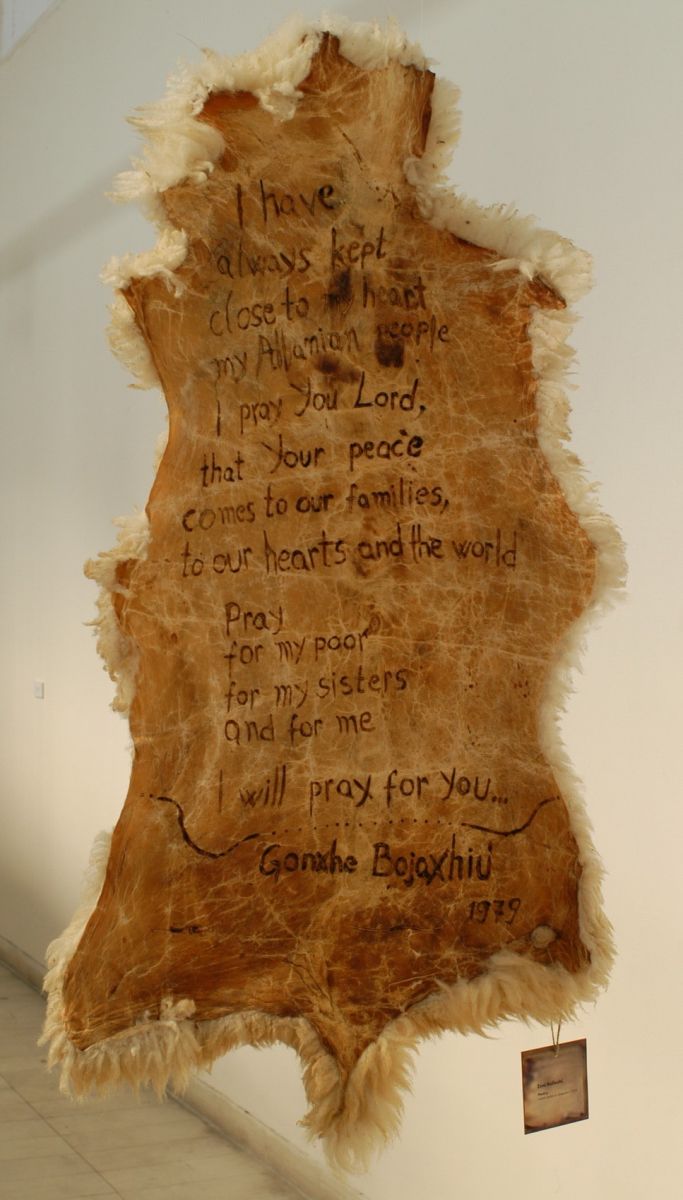 I have
always kept
close to my heart
my Albanian people
I pray You Lord,
that Your peace
comes to our families,
to our hearts and the world
Pray
for my poor
for my sisters
and for me
I will pray for You...
Gonxhe Bojaxhiu
1979